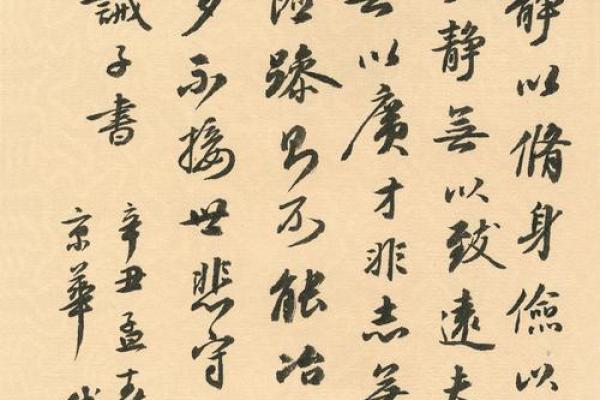 静以脩身儉以
静無以致遠夫
無以廣才非志無
險躁則不能冶
多不接世悲守
誡子書
辛丑孟春
京華